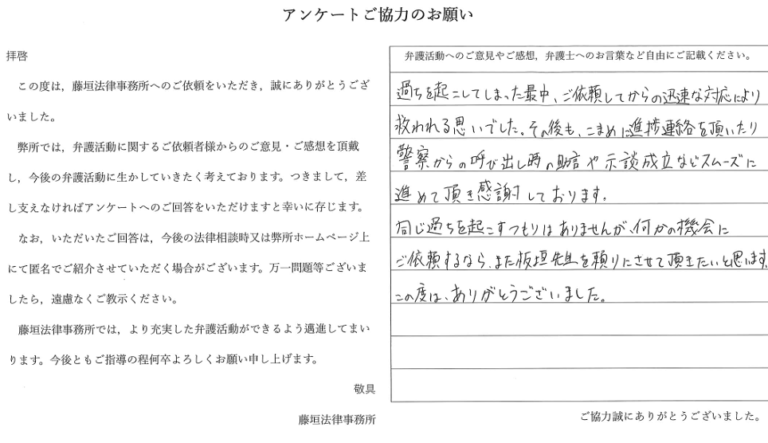 アンケートご協力のお願い
拝啓
この度は，藤垣法律事務所へのご依頼をいただき，誠にありがとうござ
いました。
弊所では，弁護活動に関するご依頼者様からのご意見・ご感想を頂戴
し，今後の弁護活動に生かしていきたく考えております。つきまして，差
し支えなければアンケートへのご回答をいただけますと幸いに存じます。
なお，いただいたご回答は，今後の法律相談時又は弊所ホームページ上
にて匿名でご紹介させていただく場合がございます。万一問題等ございま
したら，遠慮なくご教示ください。
藤垣法律事務所では，より充実した弁護活動ができるよう邁進してまい
ります。今後ともご指導の程何卒よろしくお願い申し上げます。
敬具
藤垣法律事務所
弁護活動へのご意見やご感想，弁護士へのお言葉など自由にご記載ください。
過ちを起こしてしまった最中、ご依頼してからの迅速な対応により
救われる思いでした。その後も、こまめに進捗連絡を頂いたり
警察からの呼び出し時の助言や示談成立などスムーズに
進めて頂き感謝しております。
同じ過ちを起こすつもりはありませんが、何かの機会に
ご依頼するなら、また板垣先生を頼りにさせて頂きたいと思います。
この度は、ありがとうございました。
ご協力誠にありがとうございました。